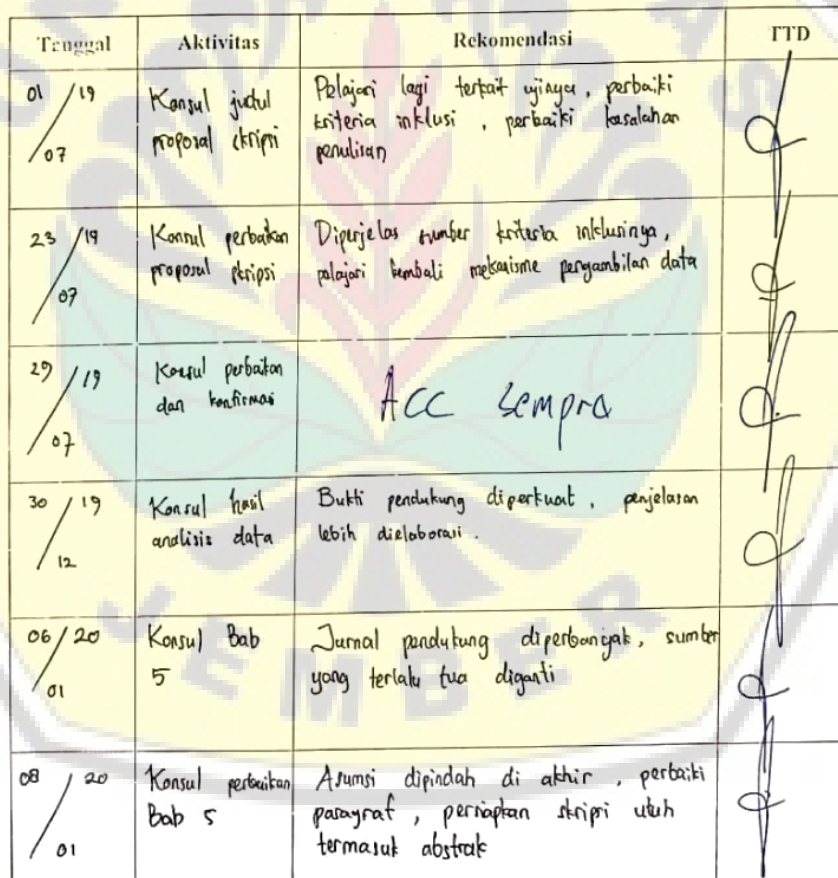 Tanggal Aktivitas Rekomendasi TTD
01/19 07
Konsul judul
proposal skripsi
Pelajari lagi terkait ujinya, perbaiki
kriteria inklusi, perbaiki kesalahan
penulisan
23/19 07
Konsul perbaikan
proposal skripsi
Diperjelas sumber kriteria inklusinya,
pelajari kembali mekanisme pengambilan data
29/19 07
Konsul perbaikan
dan konfirmasi
ACC Sempro
30/19 12
Konsul hasil
analisis data
Bukti pendukung diperkuat, penjelasan
lebih dielaborasi.
06/20 01
Konsul Bab
5
Jurnal pendukung diperbanyak, sumber
yang terlalu tua diganti
08/20 01
Konsul perbaikan
Bab 5
Asumsi dipindah di akhir, perbaiki
paragraf, persiapkan skripsi utuh
termasuk abstrak
JEMBER